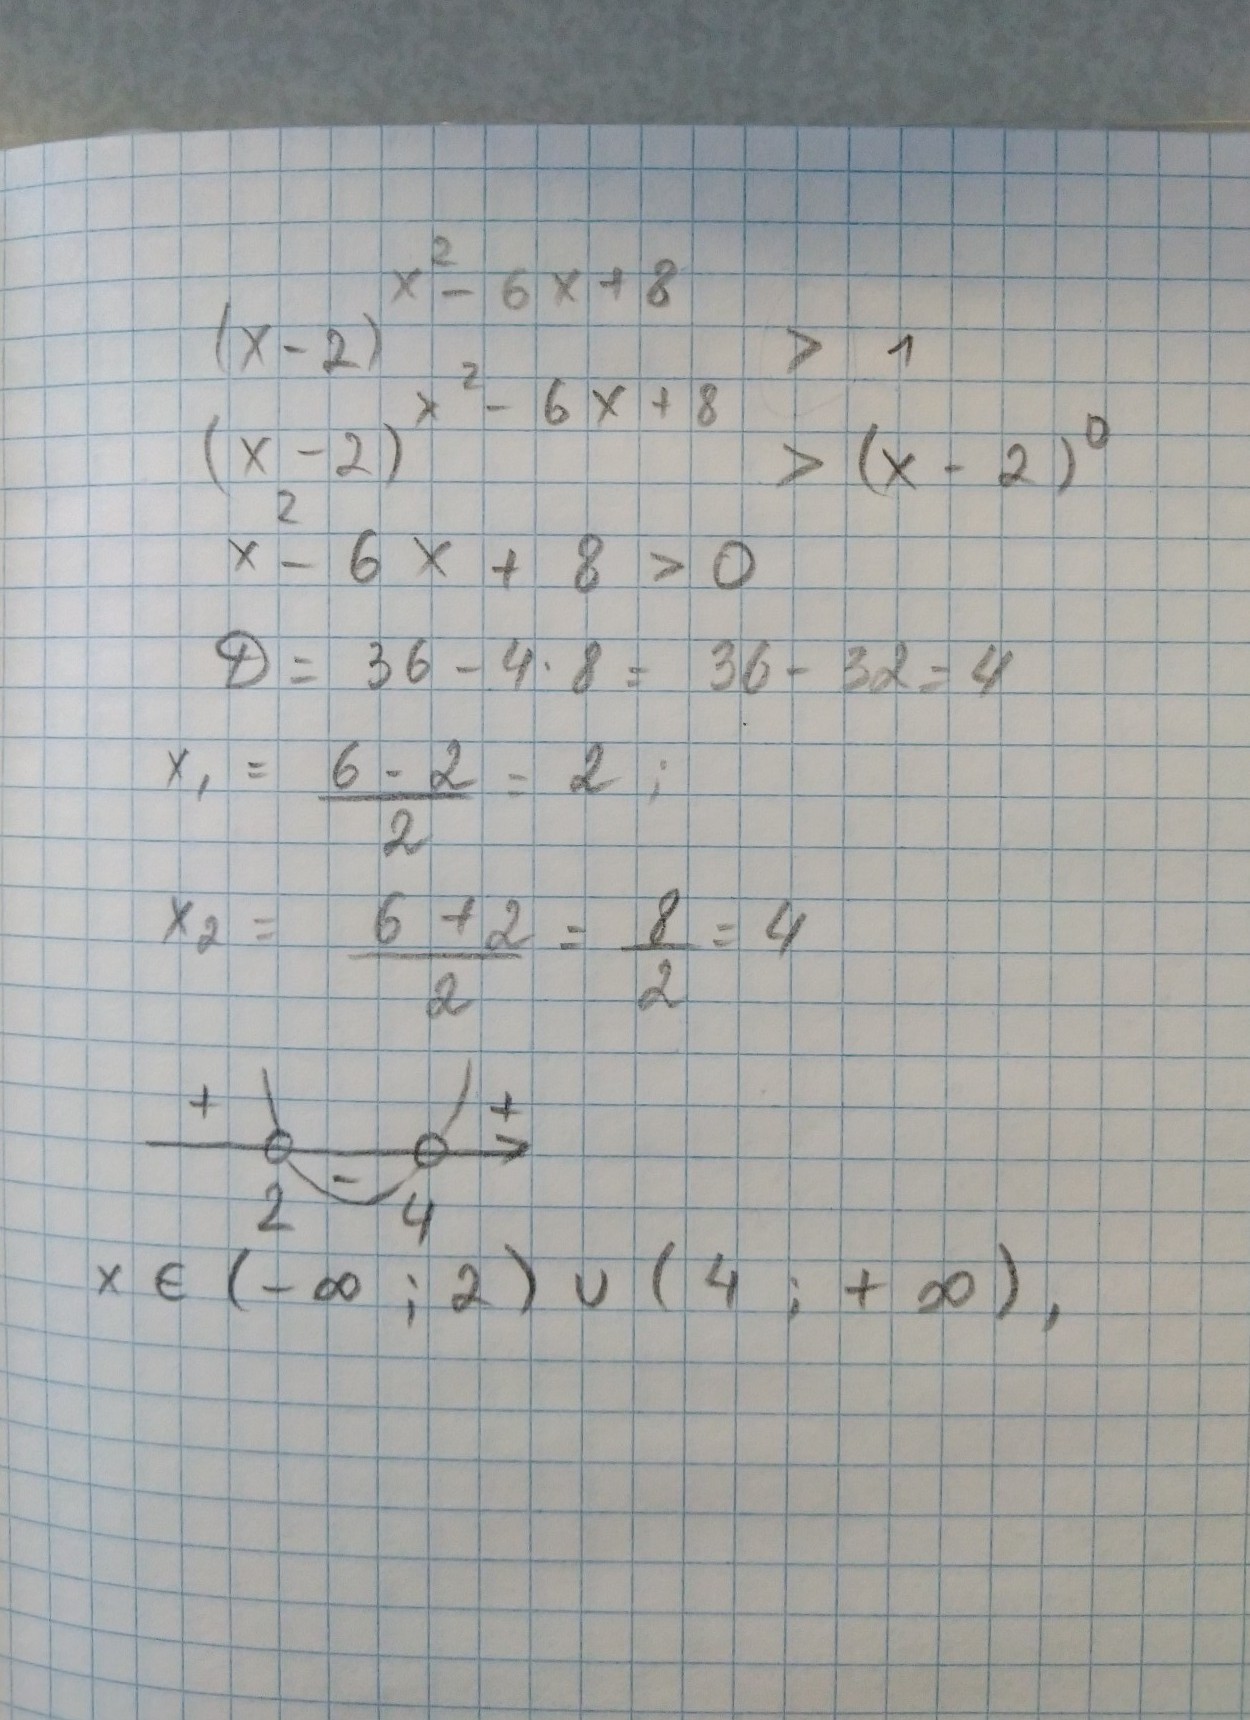 (x-2)^{x²-6x+8} > 1
(x-2)^{x²-6x+8} > (x-2)⁰
x²-6x+8>0
D = 36-4·8 = 36-32=4
x₁ = \frac{6-2}{2} = 2;
x₂ = \frac{6+2}{2} = \frac{8}{2} = 4
+ - +
2 4
x ∈ (-∞; 2) ∪ (4; +∞),